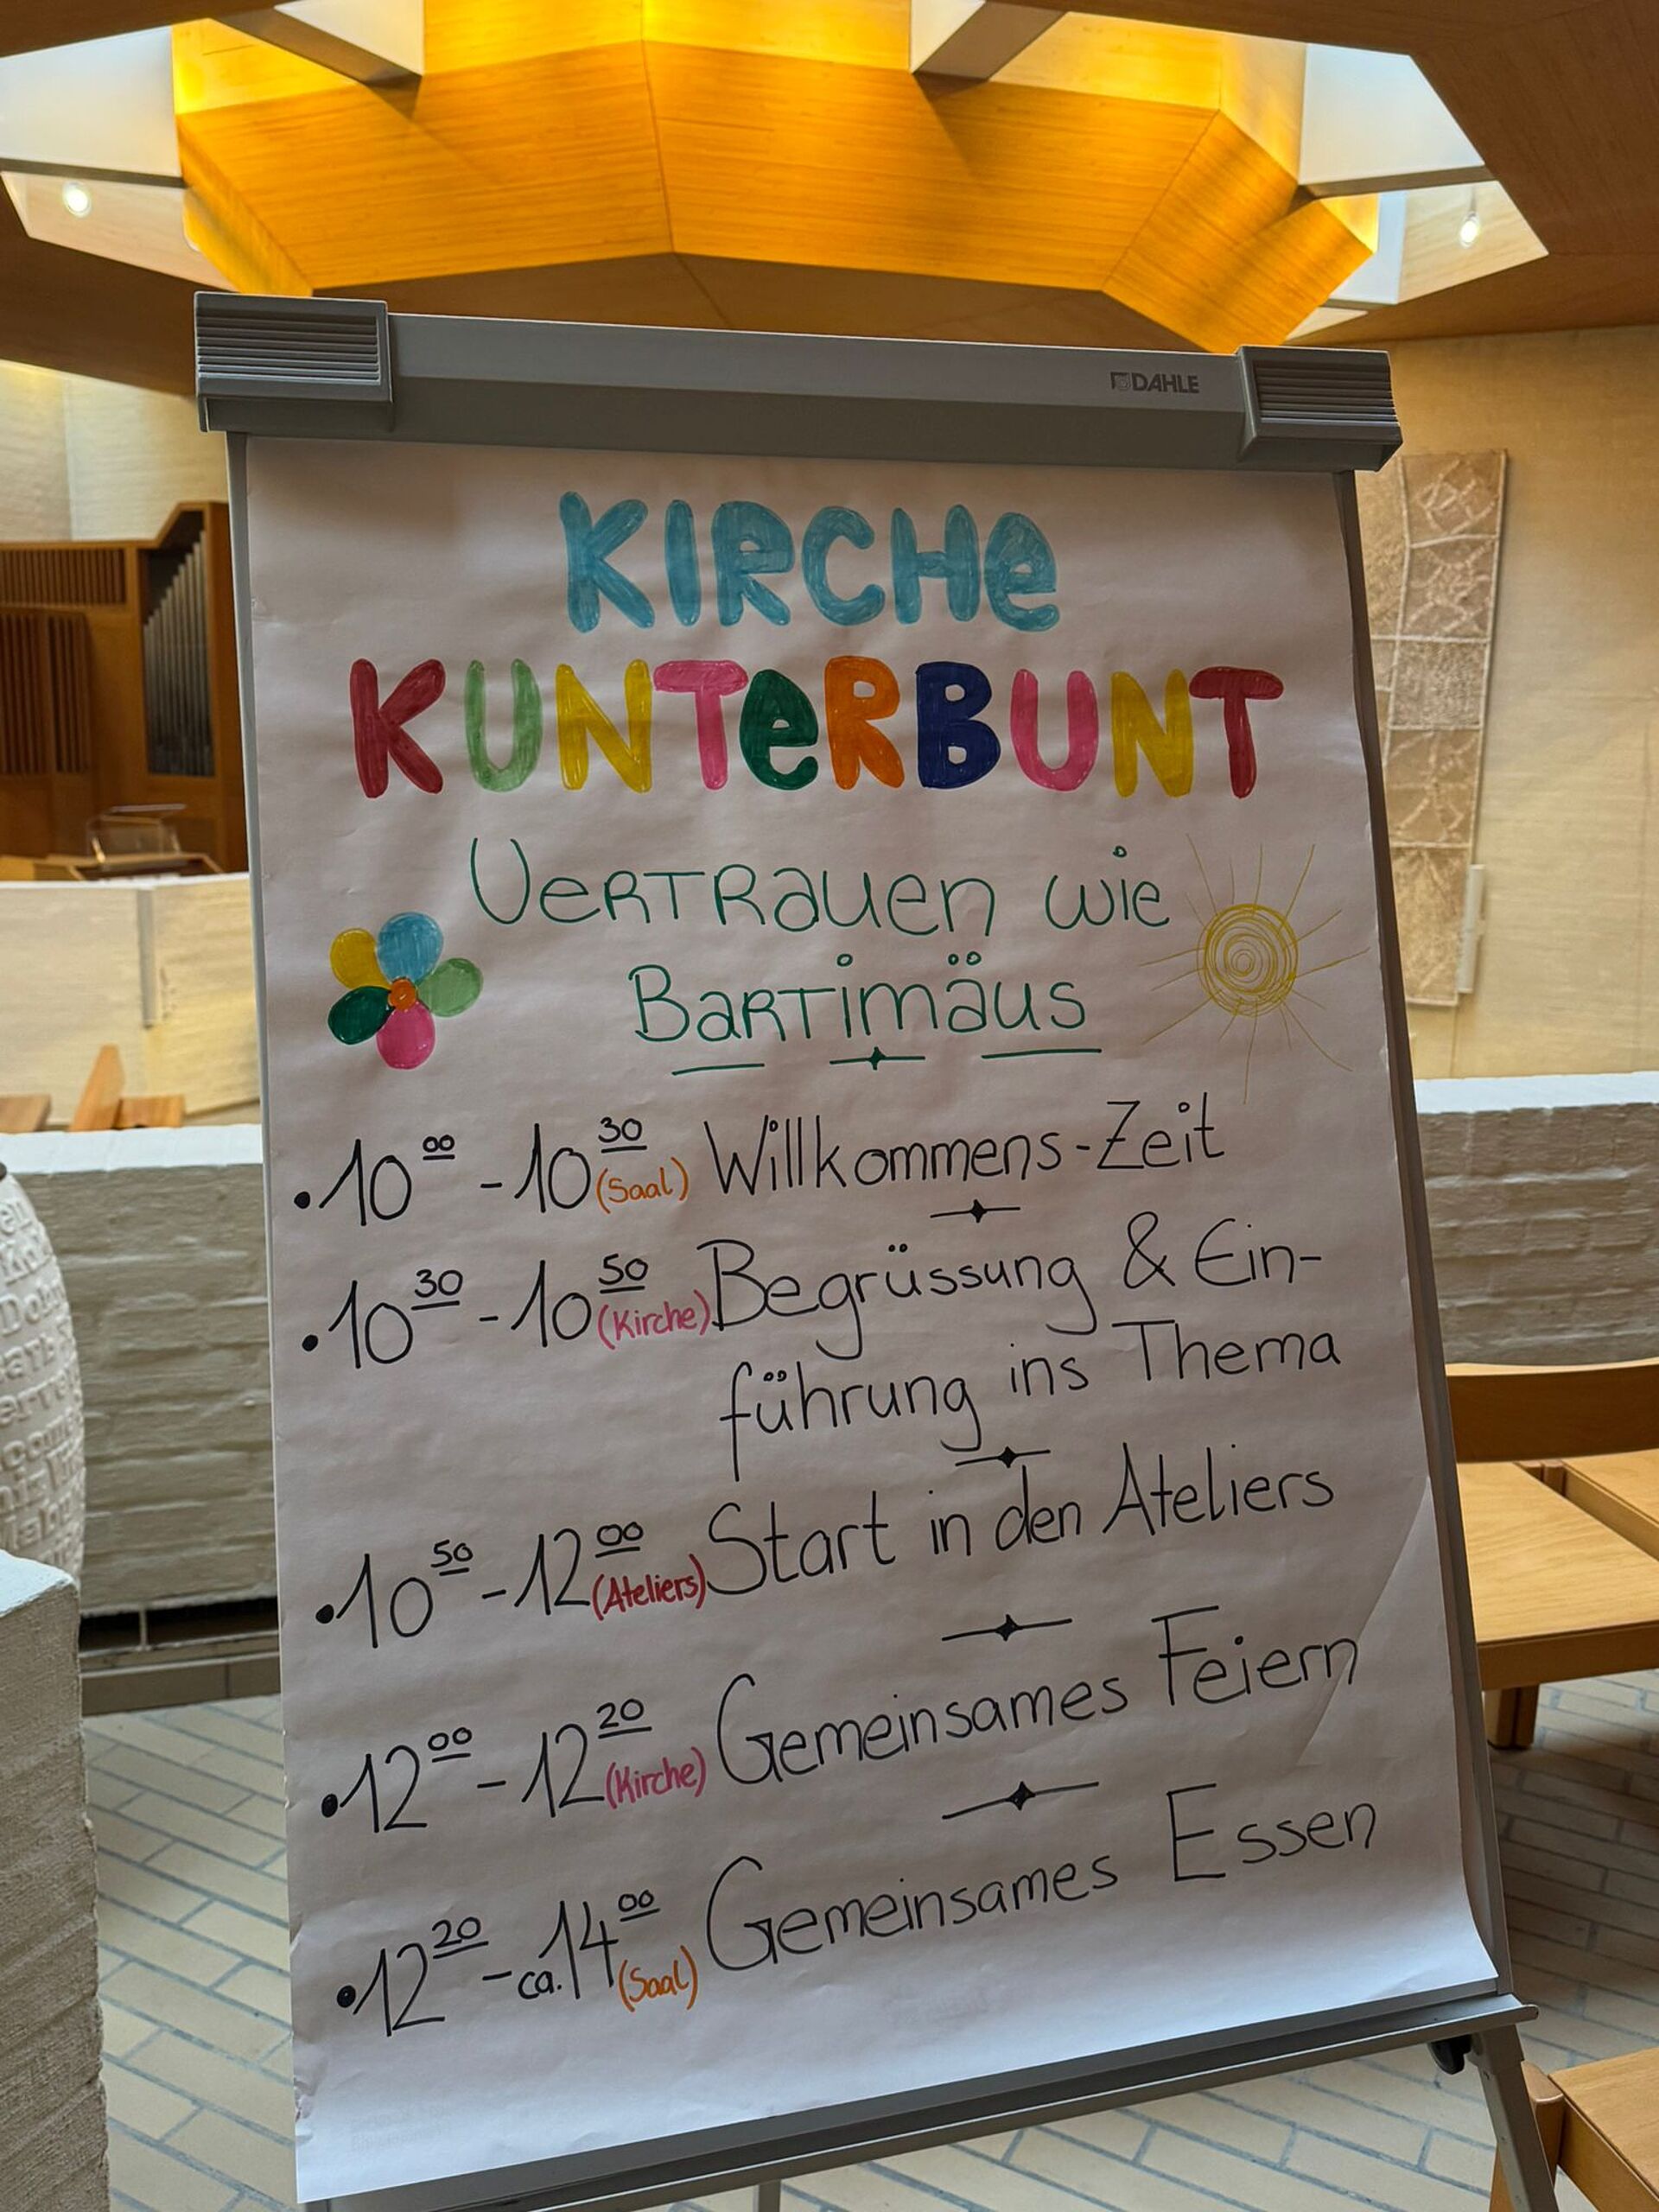 DAHLE
KIRCHe
KUNTeRBUNT
VeRTRauen wie
BaRTimäus
• 10 00 - 10 30 (Saal) Willkommens-Zeit
• 10 30 - 10 50 (Kirche) Begrüssung & Ein-
führung ins Thema
• 10 50 - 12 00 (Ateliers) Start in den Ateliers
• 12 00 - 12 20 (Kirche) Gemeinsames Feiern
• 12 20 - ca. 14 00 (Saal) Gemeinsames Essen